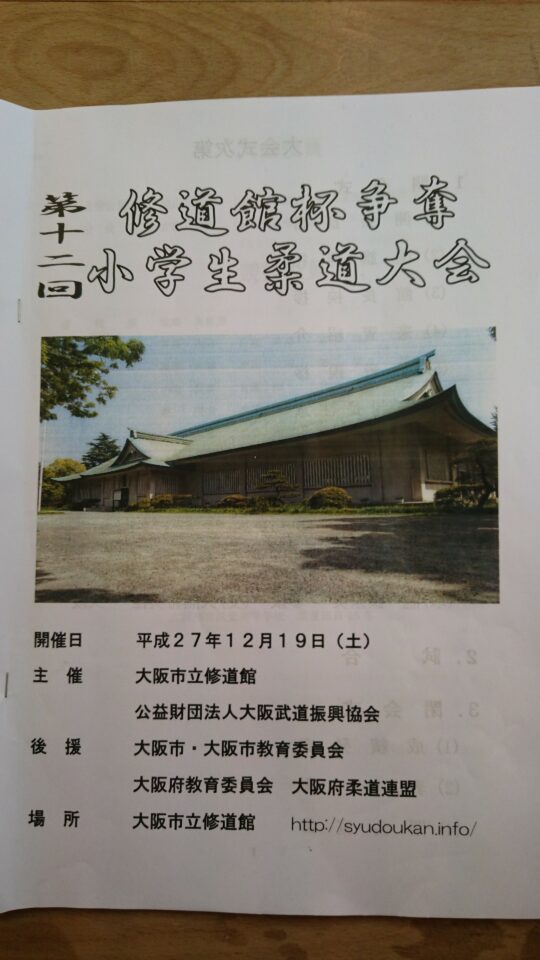 第十二回
修道館杯争奪
小学生柔道大会
開催日 平成27年12月19日（土）
主 催 大阪市立修道館
公益財団法人大阪武道振興協会
後 援 大阪市・大阪市教育委員会
大阪府教育委員会 大阪府柔道連盟
場 所 大阪市立修道館 http://syudoukan.info/